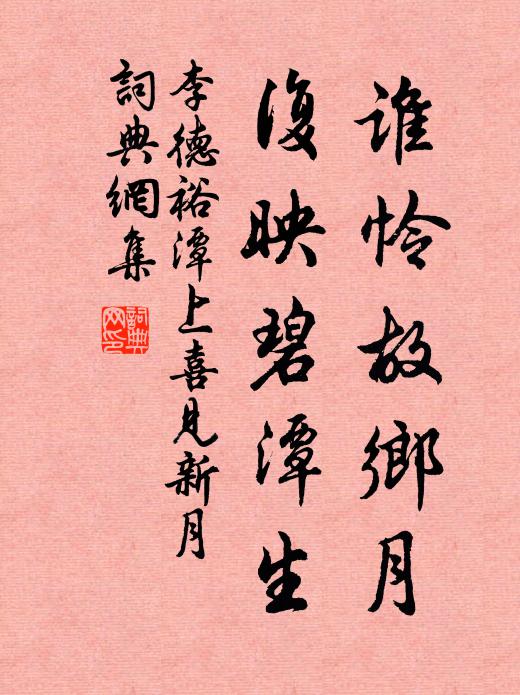 谁怜故鄉月
復映碧潭生
李德裕潭上喜見新月
詞典網集
詞典网印